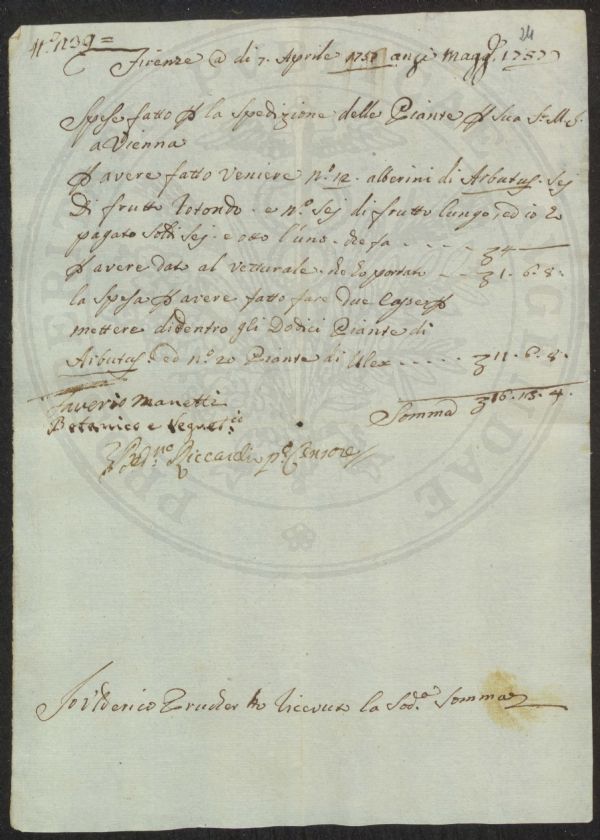 N.º 1239 =
24
Firenze @ di 7. Aprile 1757 anzi Magg. 1757
Spese fatto p la spedizione delle Piante, p Sua
a Vienna
p avere fatto Veniere n.º 12. alberini di Arbutus. Sej
Di frutto rotondo. e n.º Sej di frutto lungo, ed io
pagato Soldi Sej. e otto l'uno. che fa . . . . 4
p avere dato al vetturale. portato . . 1. 6. 8.
la spesa p avere fatto fare due Casse p
mettere didentro gli Dodici Piante di
Arbutus. ed n.º 20 Piante di Ulex . . . . . 11. 6. 8.
Somma 16. 13. 4.
Saverio Manetti
Botanico e Segret.io
Riccardi Censore
Io Federico ho ricevuto la Sod.a Somma